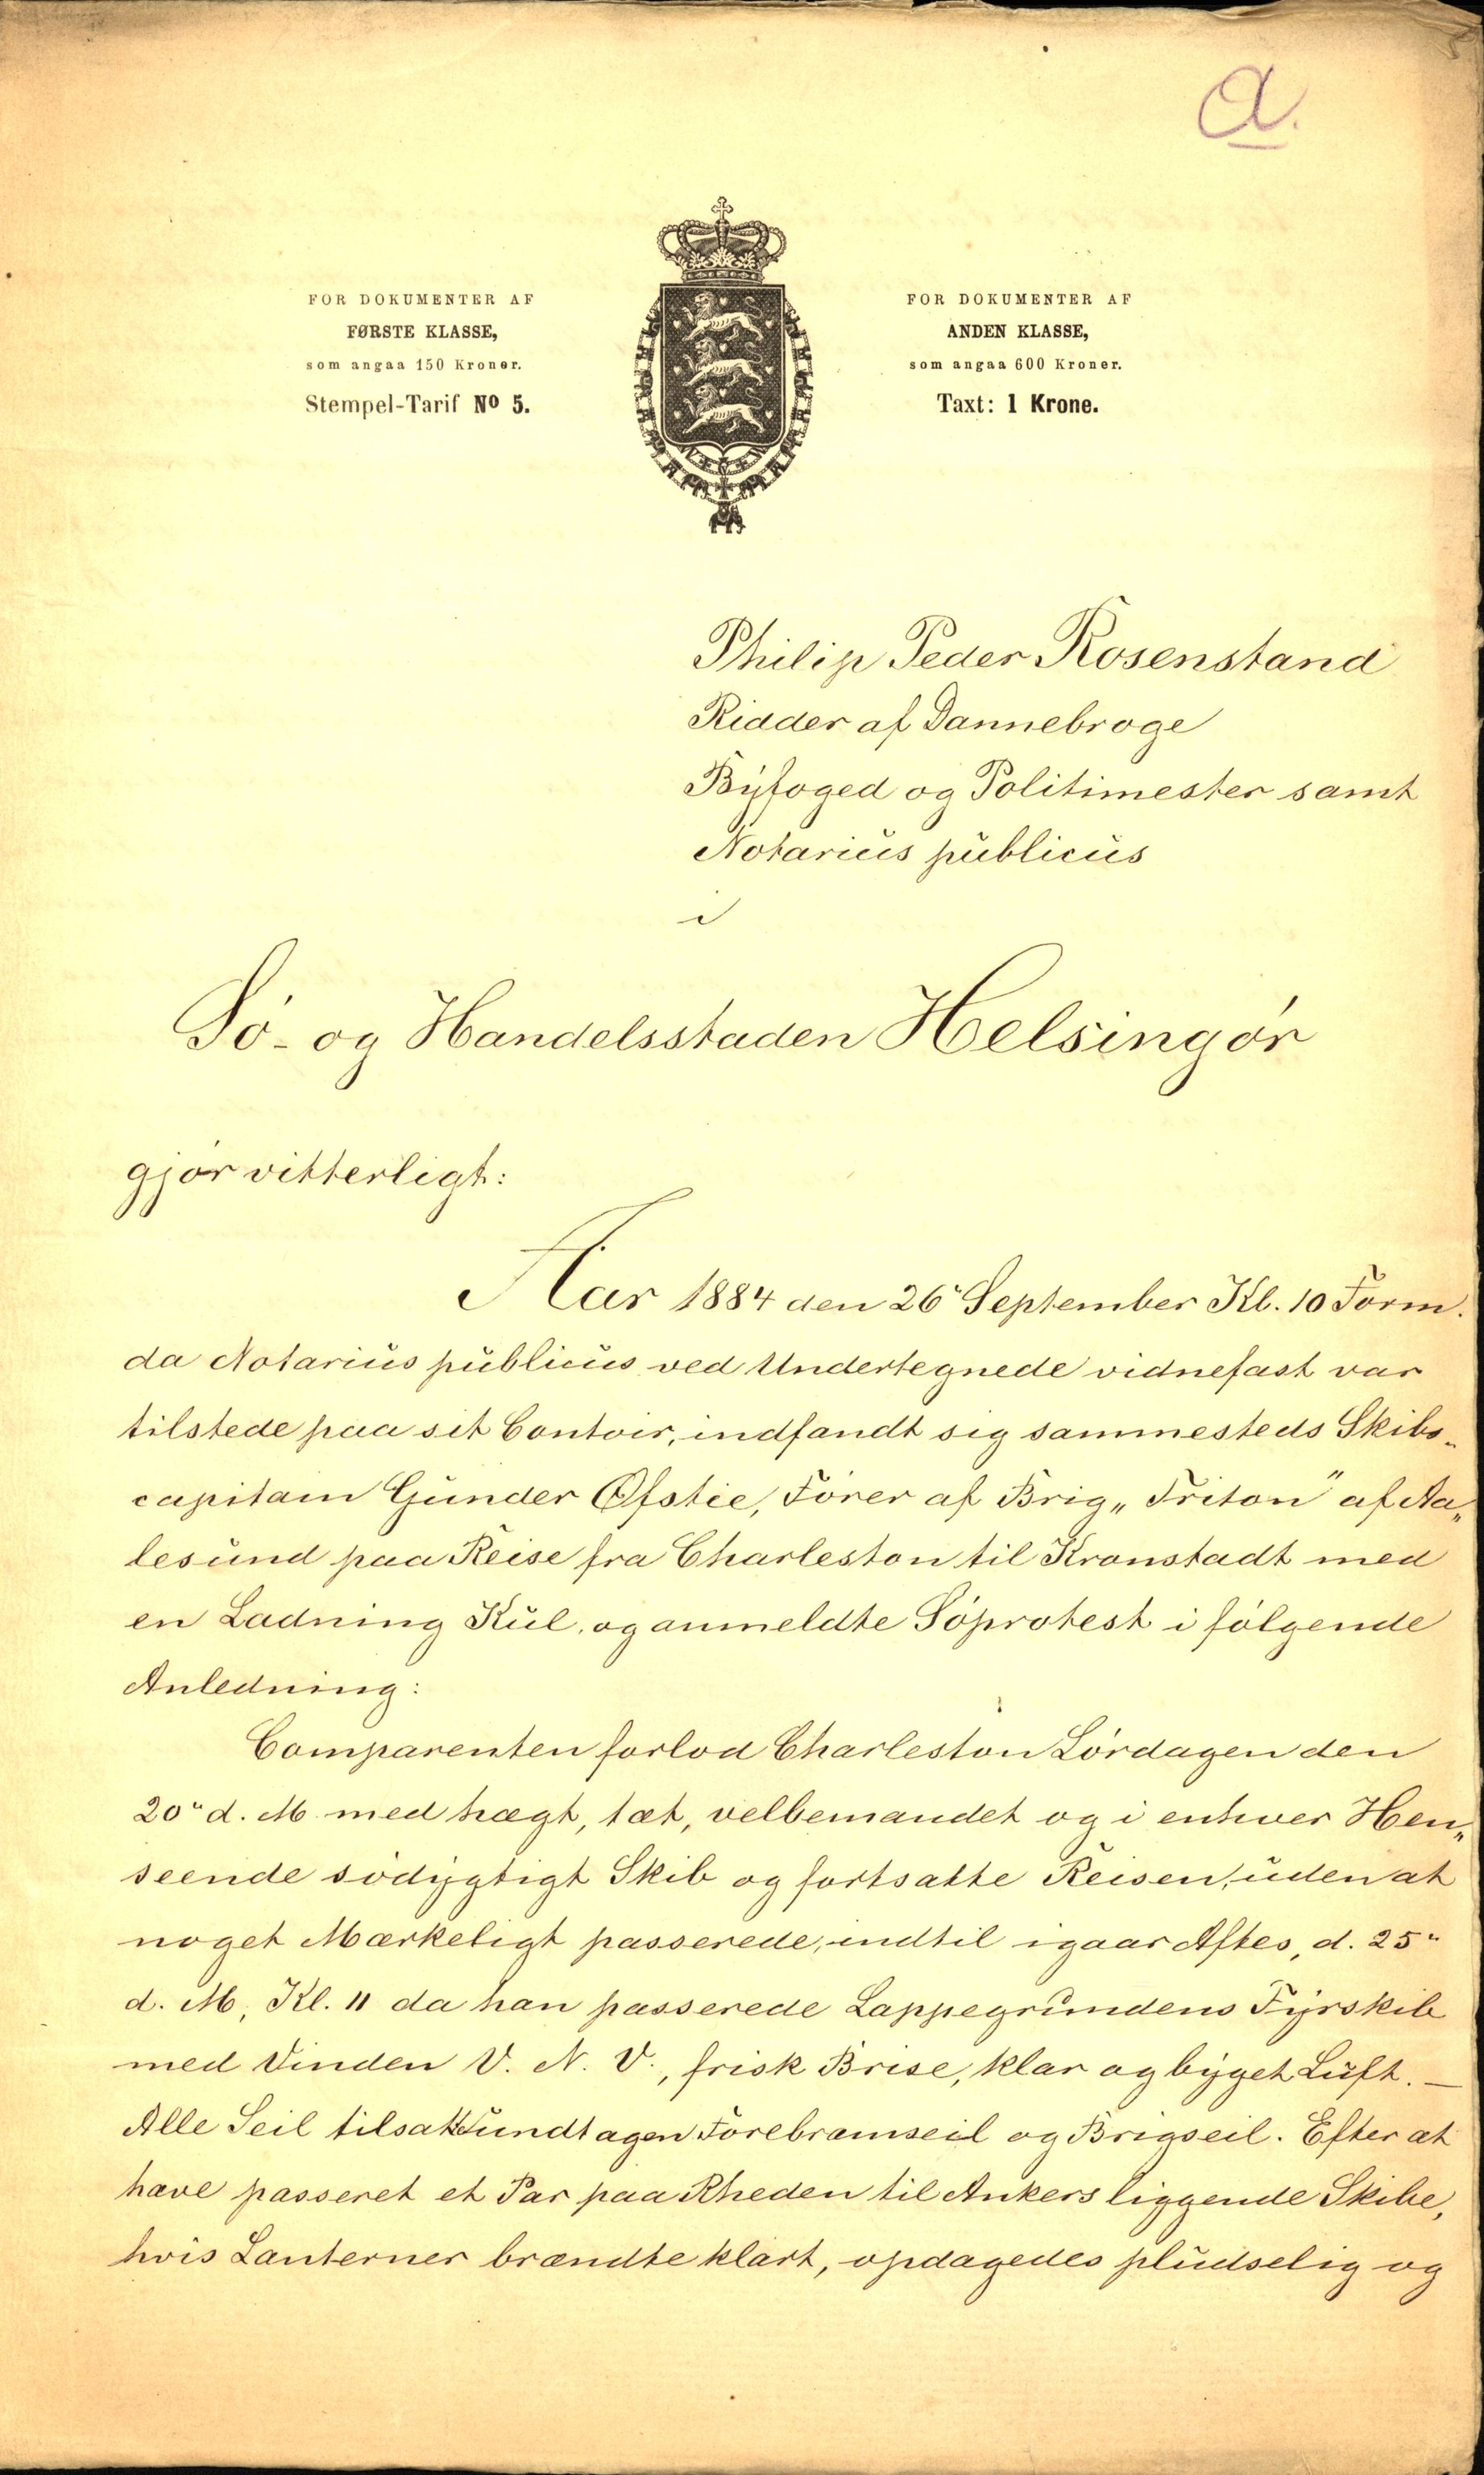 a.
FOR DOKUMENTER AF
FØRSTE KLASSE,
som angaa 150 Kroner.
Stempel-Tarif No 5.
FOR DOKUMENTER AF
ANDEN KLASSE,
som angaa 600 Kroner.
Taxt: 1 Krone.
Philip Peder Rosenstand
Ridder af Dannebroge
Byfoged og Politimester samt
Notarius publicus
i
Sö- og Handelsstaden Helsingör
gjör vitterligt:
Aar 1884 den 26' September Kl. 10 Form.
da Notarius publicus ved Undertegnede vidnefast var
tilstede paa sit Contoir, indfandt sig sammesteds Skibs-
capitain Gunder Øfstie, Förer af Brig „Triton" af Aa„
lesund paa Reise fra Charleston til Kronstadt med
en Ladning Kul, og anmeldte Söprotest i fölgende
Anledning:
Comparenten forlod Charleston Lördagen den
20" d. M. med tægt, tæt, velbemandet og i enhver Hen„
seende södygtigt Skib og fortsatte Reisen, uden at
noget Mærkeligt passerede, indtil igaar Aftes, d. 25"
d. M, Kl. 11 da han passerede Lappegrundens Fyrskib
med Vinden V. N. V., frisk Brise, klar og byget Luft. —
Alle Seil tilsatte undtagen Forebramseil og Brigseil. Efter at
have passeret et Par paa Rheden til Ankers liggende Skibe,
hvis Lanterner brændte klart, opdagedes pludselig og